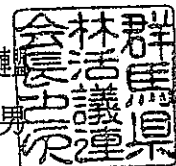 群馬県
林活議連
会長之印
男